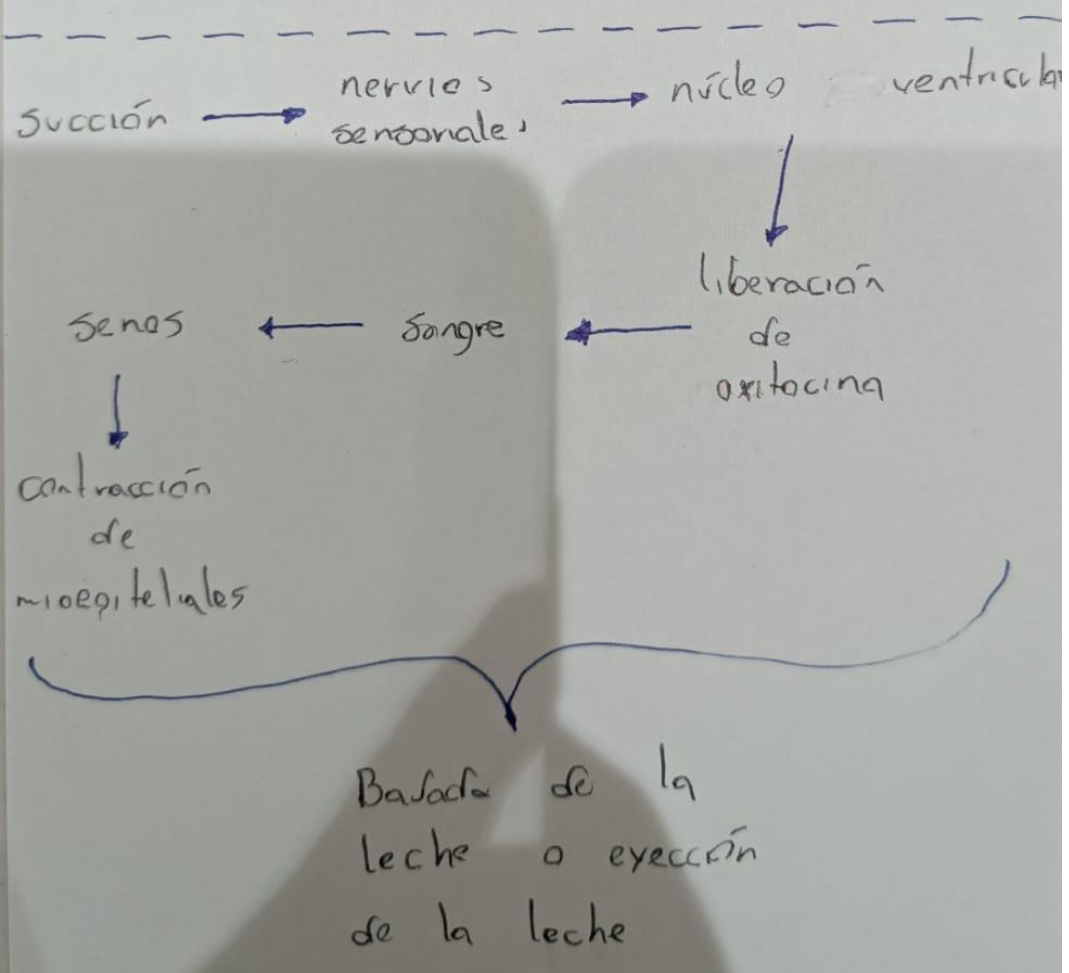 succión → nervios → núcleo ventricular
sensoriales
liberación
de
oxitocina
senos ← sangre ←
contracción
de
mioepiteliales
Bajada de la
leche o eyección
de la leche